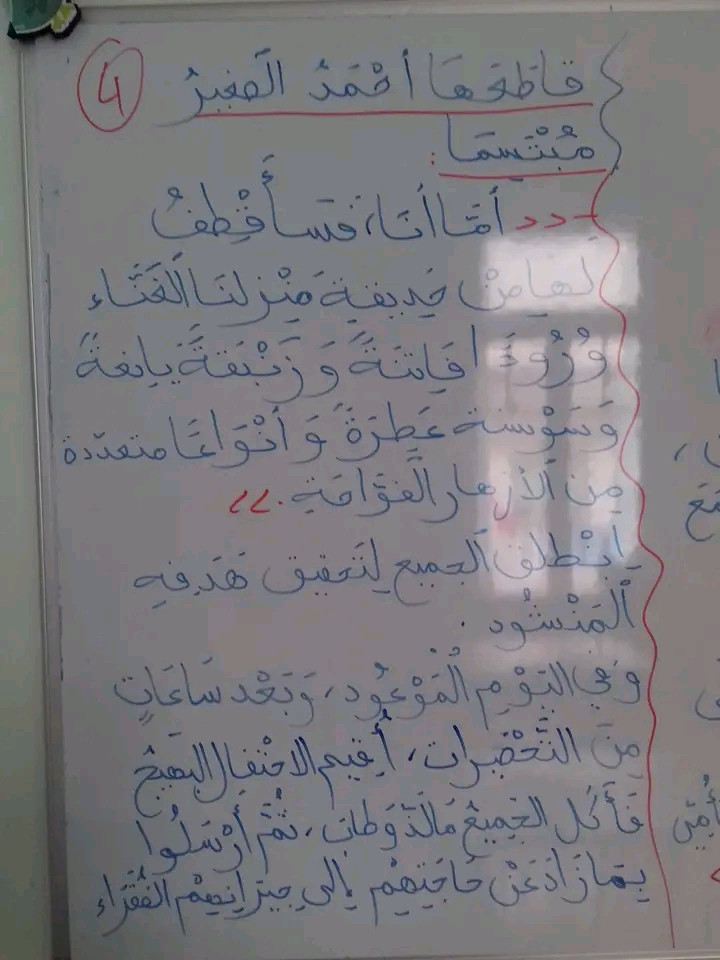 4
قَاطَعَهَا أَحْمَدُ الصَّغِيرُ
مُبْتَسِمًا :
- << أَمَّا أَنَا، فَسَأَقْطِفُ
لَهَا مِنْ حَدِيقَةِ مَنْزِلِنَا الْغَنَّاء
وُرُودًا فَاتِنَةً وَ زَنْبَقَةً يانعةً
وَسَوْسَنة عَطِرَةً وَ أَنْوَاعًا متعدّدة
مِنَ الْأزهار الْفَوَّاحَةِ . >>
اِنْطلق الْجميع لِتَحقيق هَدَفِهِ
الْمَنْشُود .
وَ في الْيَوْمِ الْمَوْعُود، وَ بَعْدَ سَاعَاتٍ
مِنَ التَّحْضِيرات، أُقِيم الاحْتِفَال الْبَهِيجُ
فَأَكَل الجَمِيعُ مَا لَذَّ وَطَاب، ثُمَّ أَرْسَلُوا
بِمَا زَادَ عَنْ حَاجَتِهِمْ إِلى جِيرَانِهِمْ الْفُقَرَاء
ن ،
أُمِّي